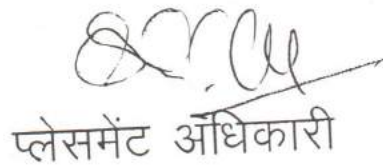 प्लेसमेंट अधिकारी